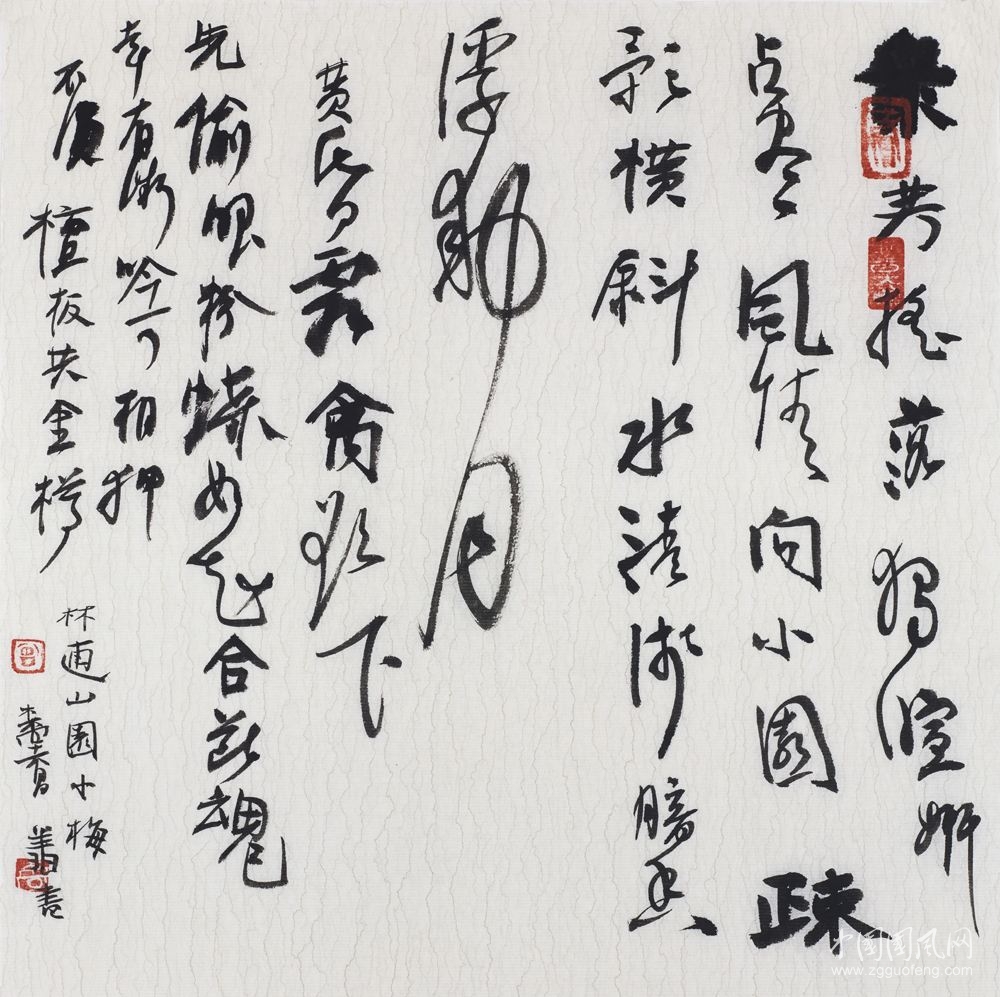 衆芳搖落獨渲妍
占尽風情向小園疎
影横斜水清浅暗香
浮動月
黄昏霜禽欲下
先偷眼粉蝶如知合断魂
幸有微吟可相狎
不須檀板共金樽
林逋山園小梅
中国国风网
www.zgguofeng.com